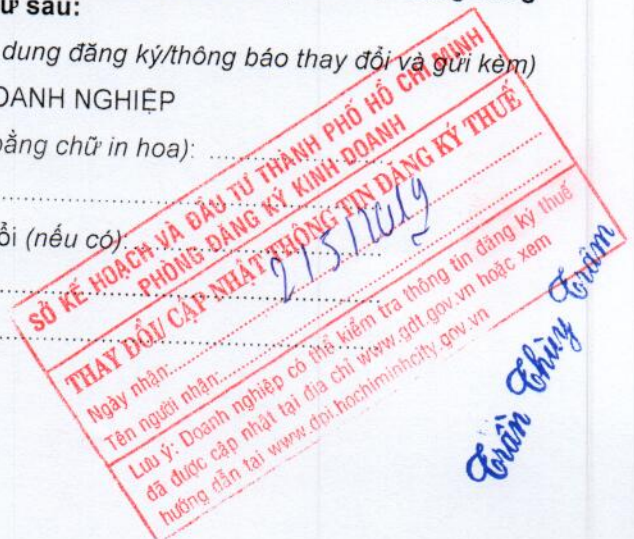 ư sau:
dung đăng ký/thông báo thay đổi và gửi kèm)
OANH NGHIỆP
bằng chữ in hoa):
ổi (nếu có):
SỞ KẾ HOẠCH VÀ ĐẦU TƯ THÀNH PHỐ HỒ CHÍ MINH
PHÒNG ĐĂNG KÝ KINH DOANH
THAY ĐỔI/ CẬP NHẬT THÔNG TIN ĐĂNG KÝ THUẾ
Ngày nhận: 21/5/2019
Tên người nhận:
Lưu ý: Doanh nghiệp có thể kiểm tra thông tin đăng ký thuế
đã được cập nhật tại địa chỉ www.gdt.gov.vn hoặc xem
hướng dẫn tại www.dpi.hochiminhcity.gov.vn
Trần Thùy Trâm